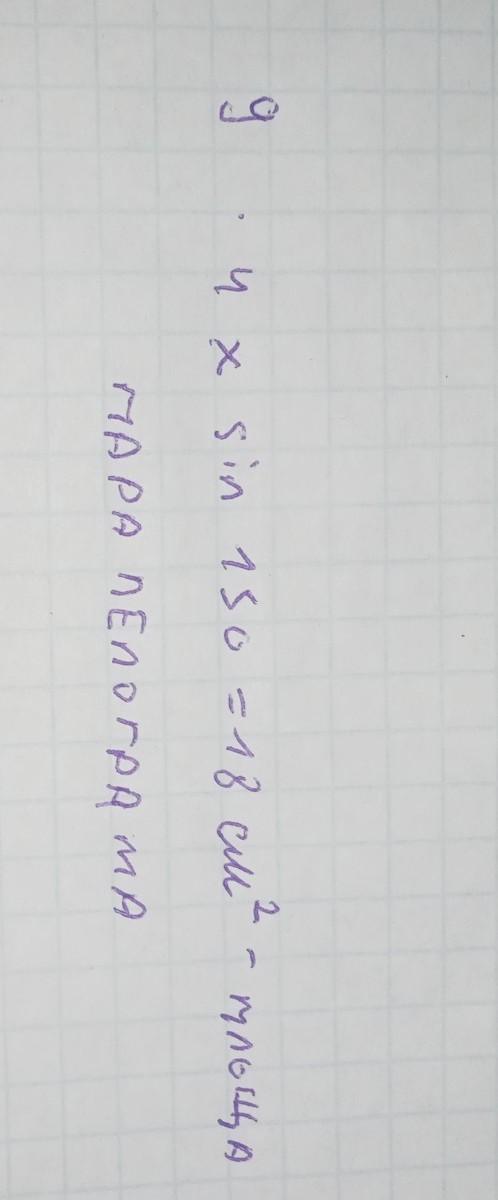 9 · 4 x sin 150 = 18 см² - площа
паралелограма